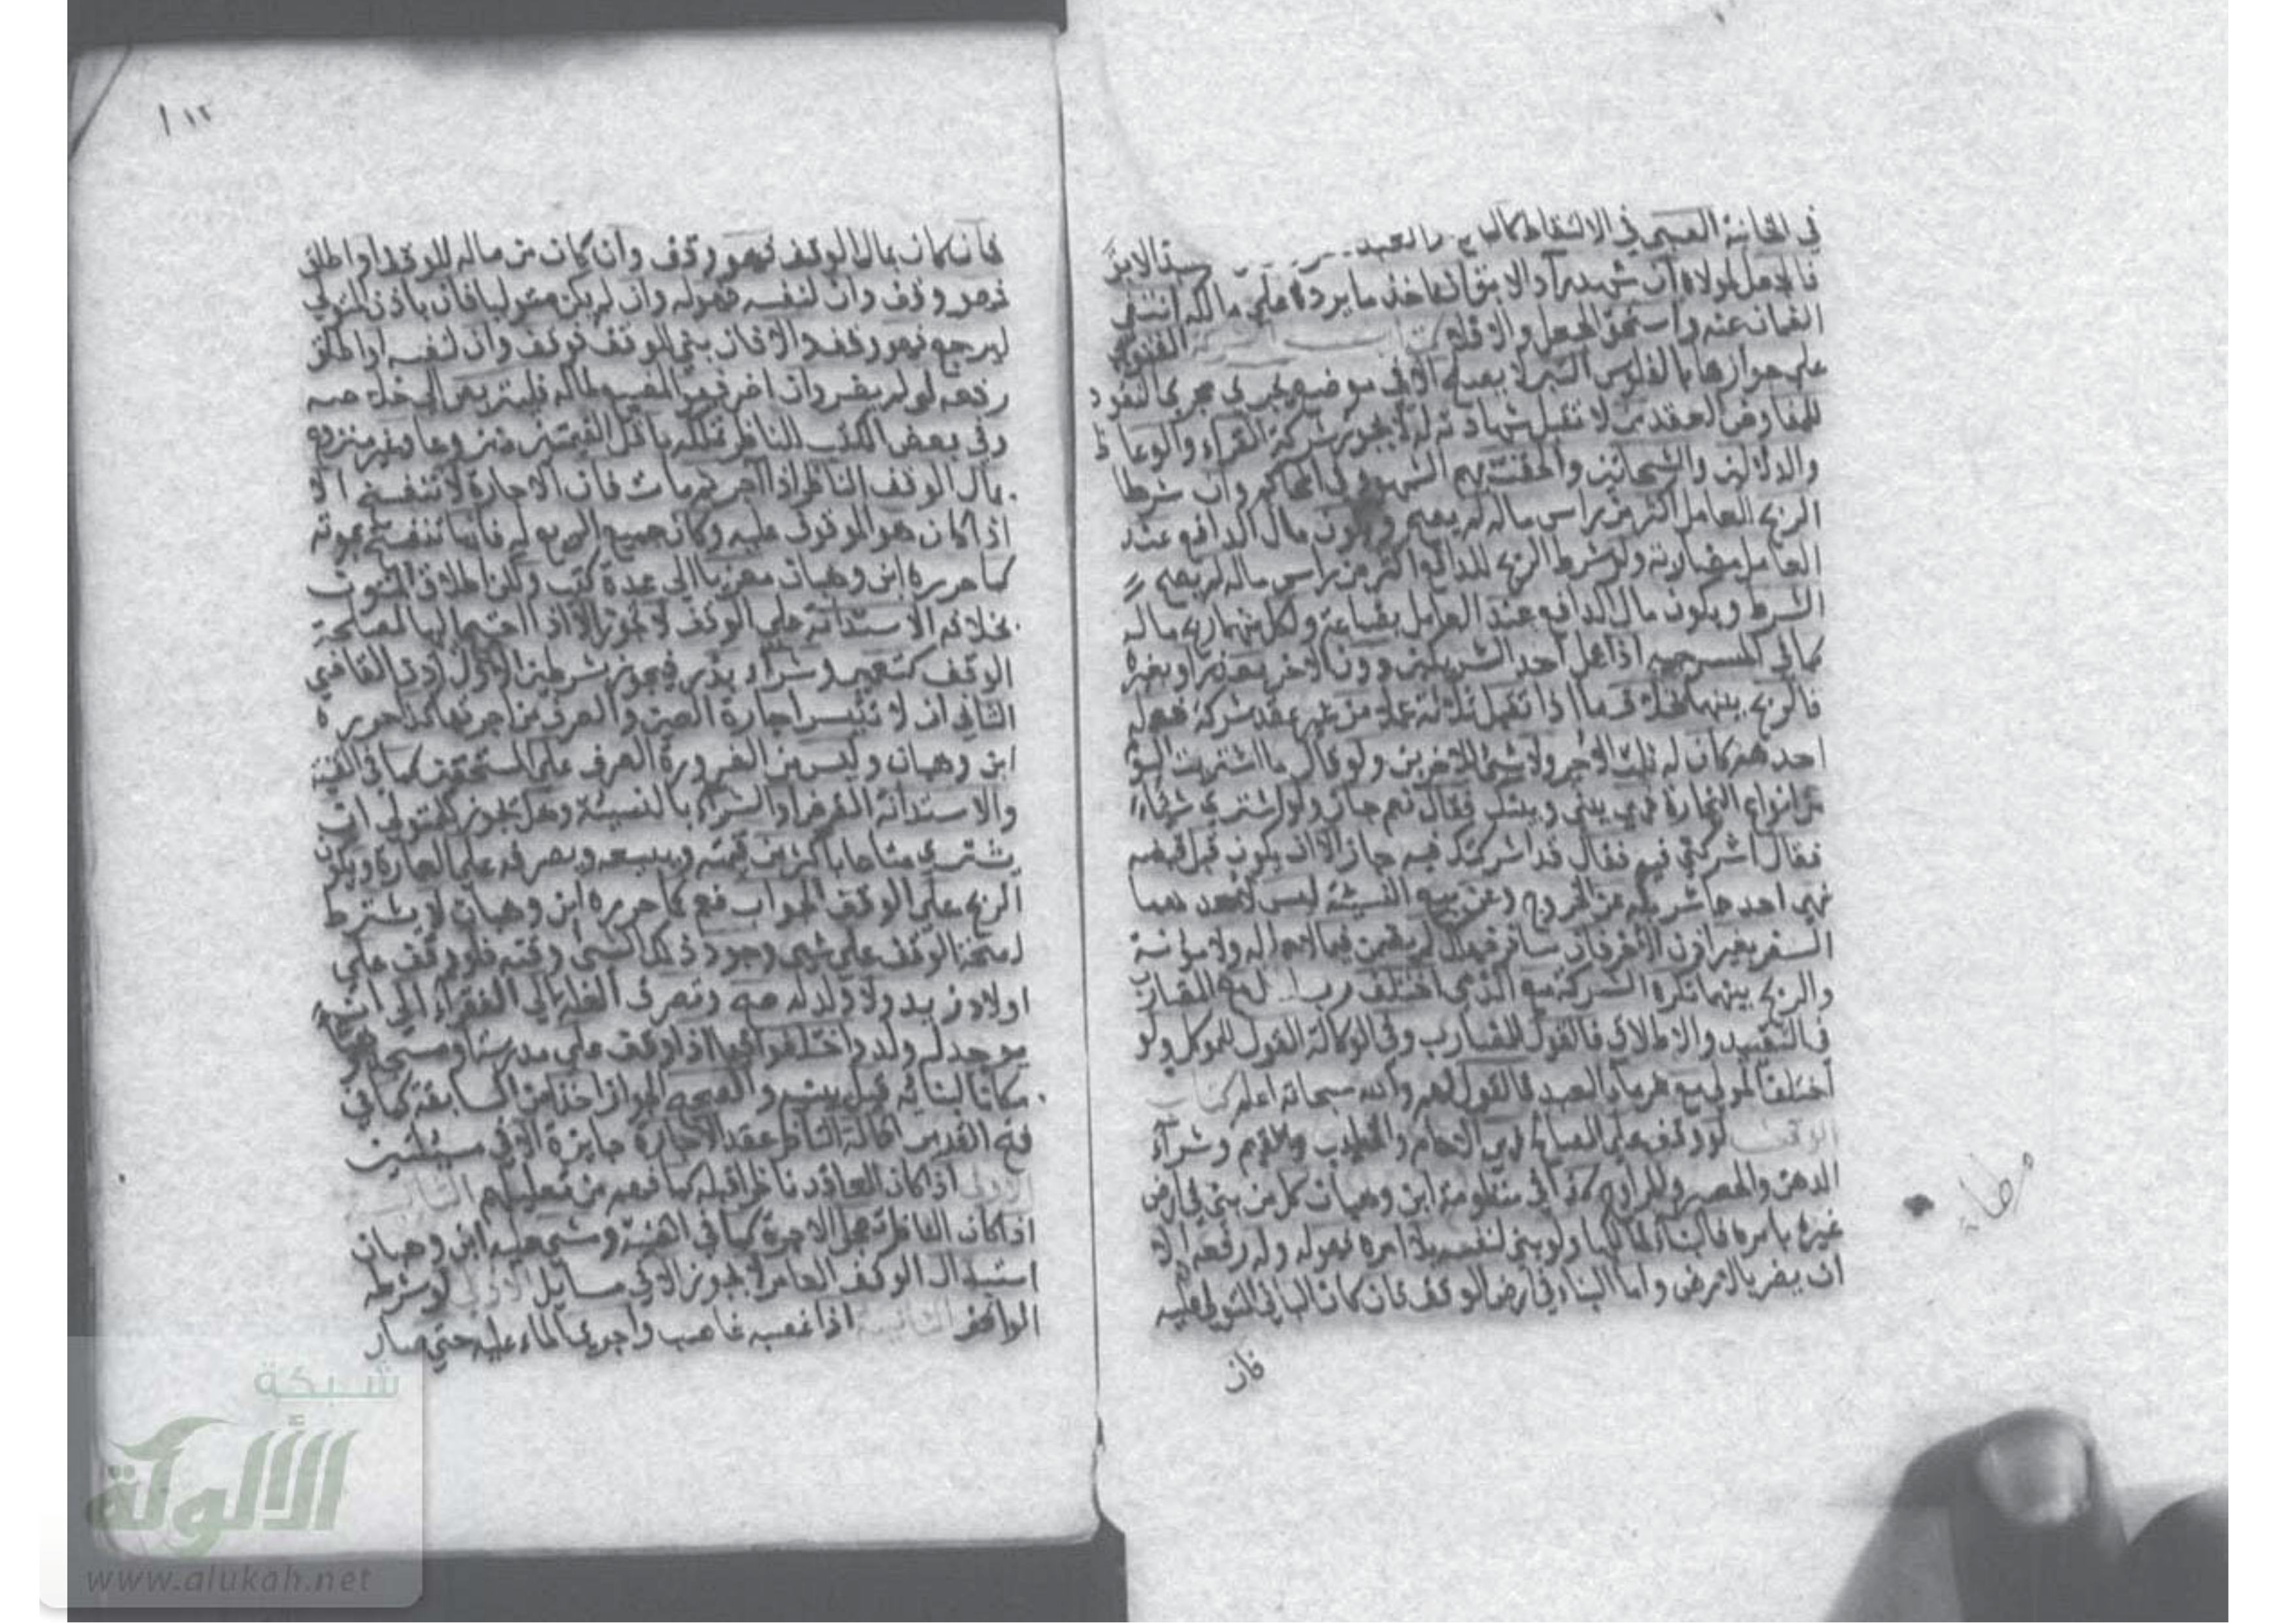 في الخانية الصبي في الالتقاط كالبالغ والعبد
فالجعل لمولاه ان شهد راد الابق انه اخذه ليرده على مالكه انتفى
الضمان عنه واستحق الجعل والا فلا كتاب الشركة الفتوى
على جوازها بالفلوس التبر لا يصلح الا في موضع يجري مجرى النقود
للمفاوض العقد من لا تقبل شهادته له لا يجوز شركة القراء والوعاظ
والدلالين والشحاذين والحقت بهم الشهود في المحاكم وان شرطا
الربح للعامل اكثر من راس ماله لم يصح ويكون مال الدافع عند
العامل مضاربة ولو شرط الربح للدافع اكثر من راس ماله لم يصح
الشرط ويكون مال الدافع عند العامل بضاعة ولكل منهما ربح ماله
كما في السرجية اذا عمل احد الشريكين دون الاخر بعذر او بغيره
فالربح بينهما بخلاف ما اذا تقبل ثلاثة عملا من غير عقد شركة فعمل
احدهم كان له ثلث الاجر ولا شيئ للاخرين ولو قال ما اشتريت اليوم
من انواع التجارة فهي بيني وبينك فقال نعم جاز ولو اشترى شيئا
فقال اشركني فيه فقال قد اشركتك فيه جاز الا ان يكون قبل قبضه
نهى احدهما شريكه عن الخروج وعن بيع النسيئة ليس لاحدهما
السفر بغير اذن الاخر فان سافر فهلك لم يضمن فيما لا حمل له ولا مؤنة
والربح بينهما تكره الشركة مع الذمي اختلف رب المال مع المضارب
في التقييد والاطلاق فالقول للمضارب وفي الوكالة القول للموكل ولو
اختلف المولى مع غرماء العبد فالقول لهم والله سبحانه اعلم كتاب
الوقف لو وقف على المصالح فهي للامام والخطيب والقيم وشراء
الدهن والحصر والمراوح كذا في منظومة ابن وهبان كل من بنى في ارض
غيره بامره فالبناء لمالكها ولو بنى لنفسه بلا امره فهو له وله رفعه الا
ان يضر بالارض واما البناء في ارض الوقف فان كان الباني المتولي عليه
فان
مطلب
١١٢
فان كان بمال الوقف فهو وقف وان كان من ماله للوقف او اطلق
فهو وقف وان لنفسه فهو له وان لم يكن متوليا فان باذن المتولي
ليرجع فهو وقف والا فان بنى للوقف فوقف وان لنفسه او اطلق
رفعه لو لم يضر وان اضر فهو المضيع لماله فليتربص الى خلاصه
وفي بعض الكتب للناظر تملكه باقل القيمتين منزوعا وغير منزوع
بمال الوقف الناظر اذا اجر ثم مات فان الاجارة لا تنفسخ الا
اذا كان هو الموقوف عليه وكان جميع الريع له فانها تنفسخ بموته
كما حرره ابن وهبان معزيا الى عدة كتب ولكن اطلاق المتون
بخلافه الاستدانة على الوقف لا تجوز الا اذا احتيج اليها لمصلحة
الوقف كتعمير وشراء بذر فيجوز بشرطين الاول اذن القاضي
الثاني ان لا تتيسر اجارة العين والصرف من اجرتها كما حرره
ابن وهبان وليس من الضرورة الصرف على المستحقين كما في القنية
والاستدانة القرض او الشراء بالنسيئة وهل يجوز للمتولي ان
يشتري متاعا باكثر من قيمته ويبيعه ويصرفه على العمارة ويكون
الربح على الوقف الجواب نعم كما حرره ابن وهبان لا يشترط
لصحة الوقف على شيئ وجود ذلك الشيئ وقته فلو وقف على
اولاد زيد ولا ولد له صح وتصرف الغلة الى الفقراء الى ان
يوجد له ولد واختلفوا فيما اذا وقف على مدرسة او مسجد
مكانا لبنائه قبل بنيه والصحيح الجواز اخذا من السابقة كما في
فتح القدير اقالة الناظر عقد الاجارة جايزة الا في مسئلتين
الاولى اذا كان العاقد ناظرا قبله كما فهم من تعليلهم الثانية
اذا كان الناظر تعجل الاجرة كما في القنية ومشى عليه ابن وهبان
استبدال الوقف العامر لا يجوز الا في مسايل الاولى لو شرطه
الواقف الثانية اذا غصبه غاصب واجرى الماء عليه حتى صار
شبكة
الألوكة
www.alukah.net